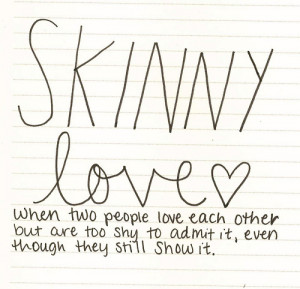 SKINNY
love♡
When two people love each other
but are too shy to admit it, even
though they still show it.